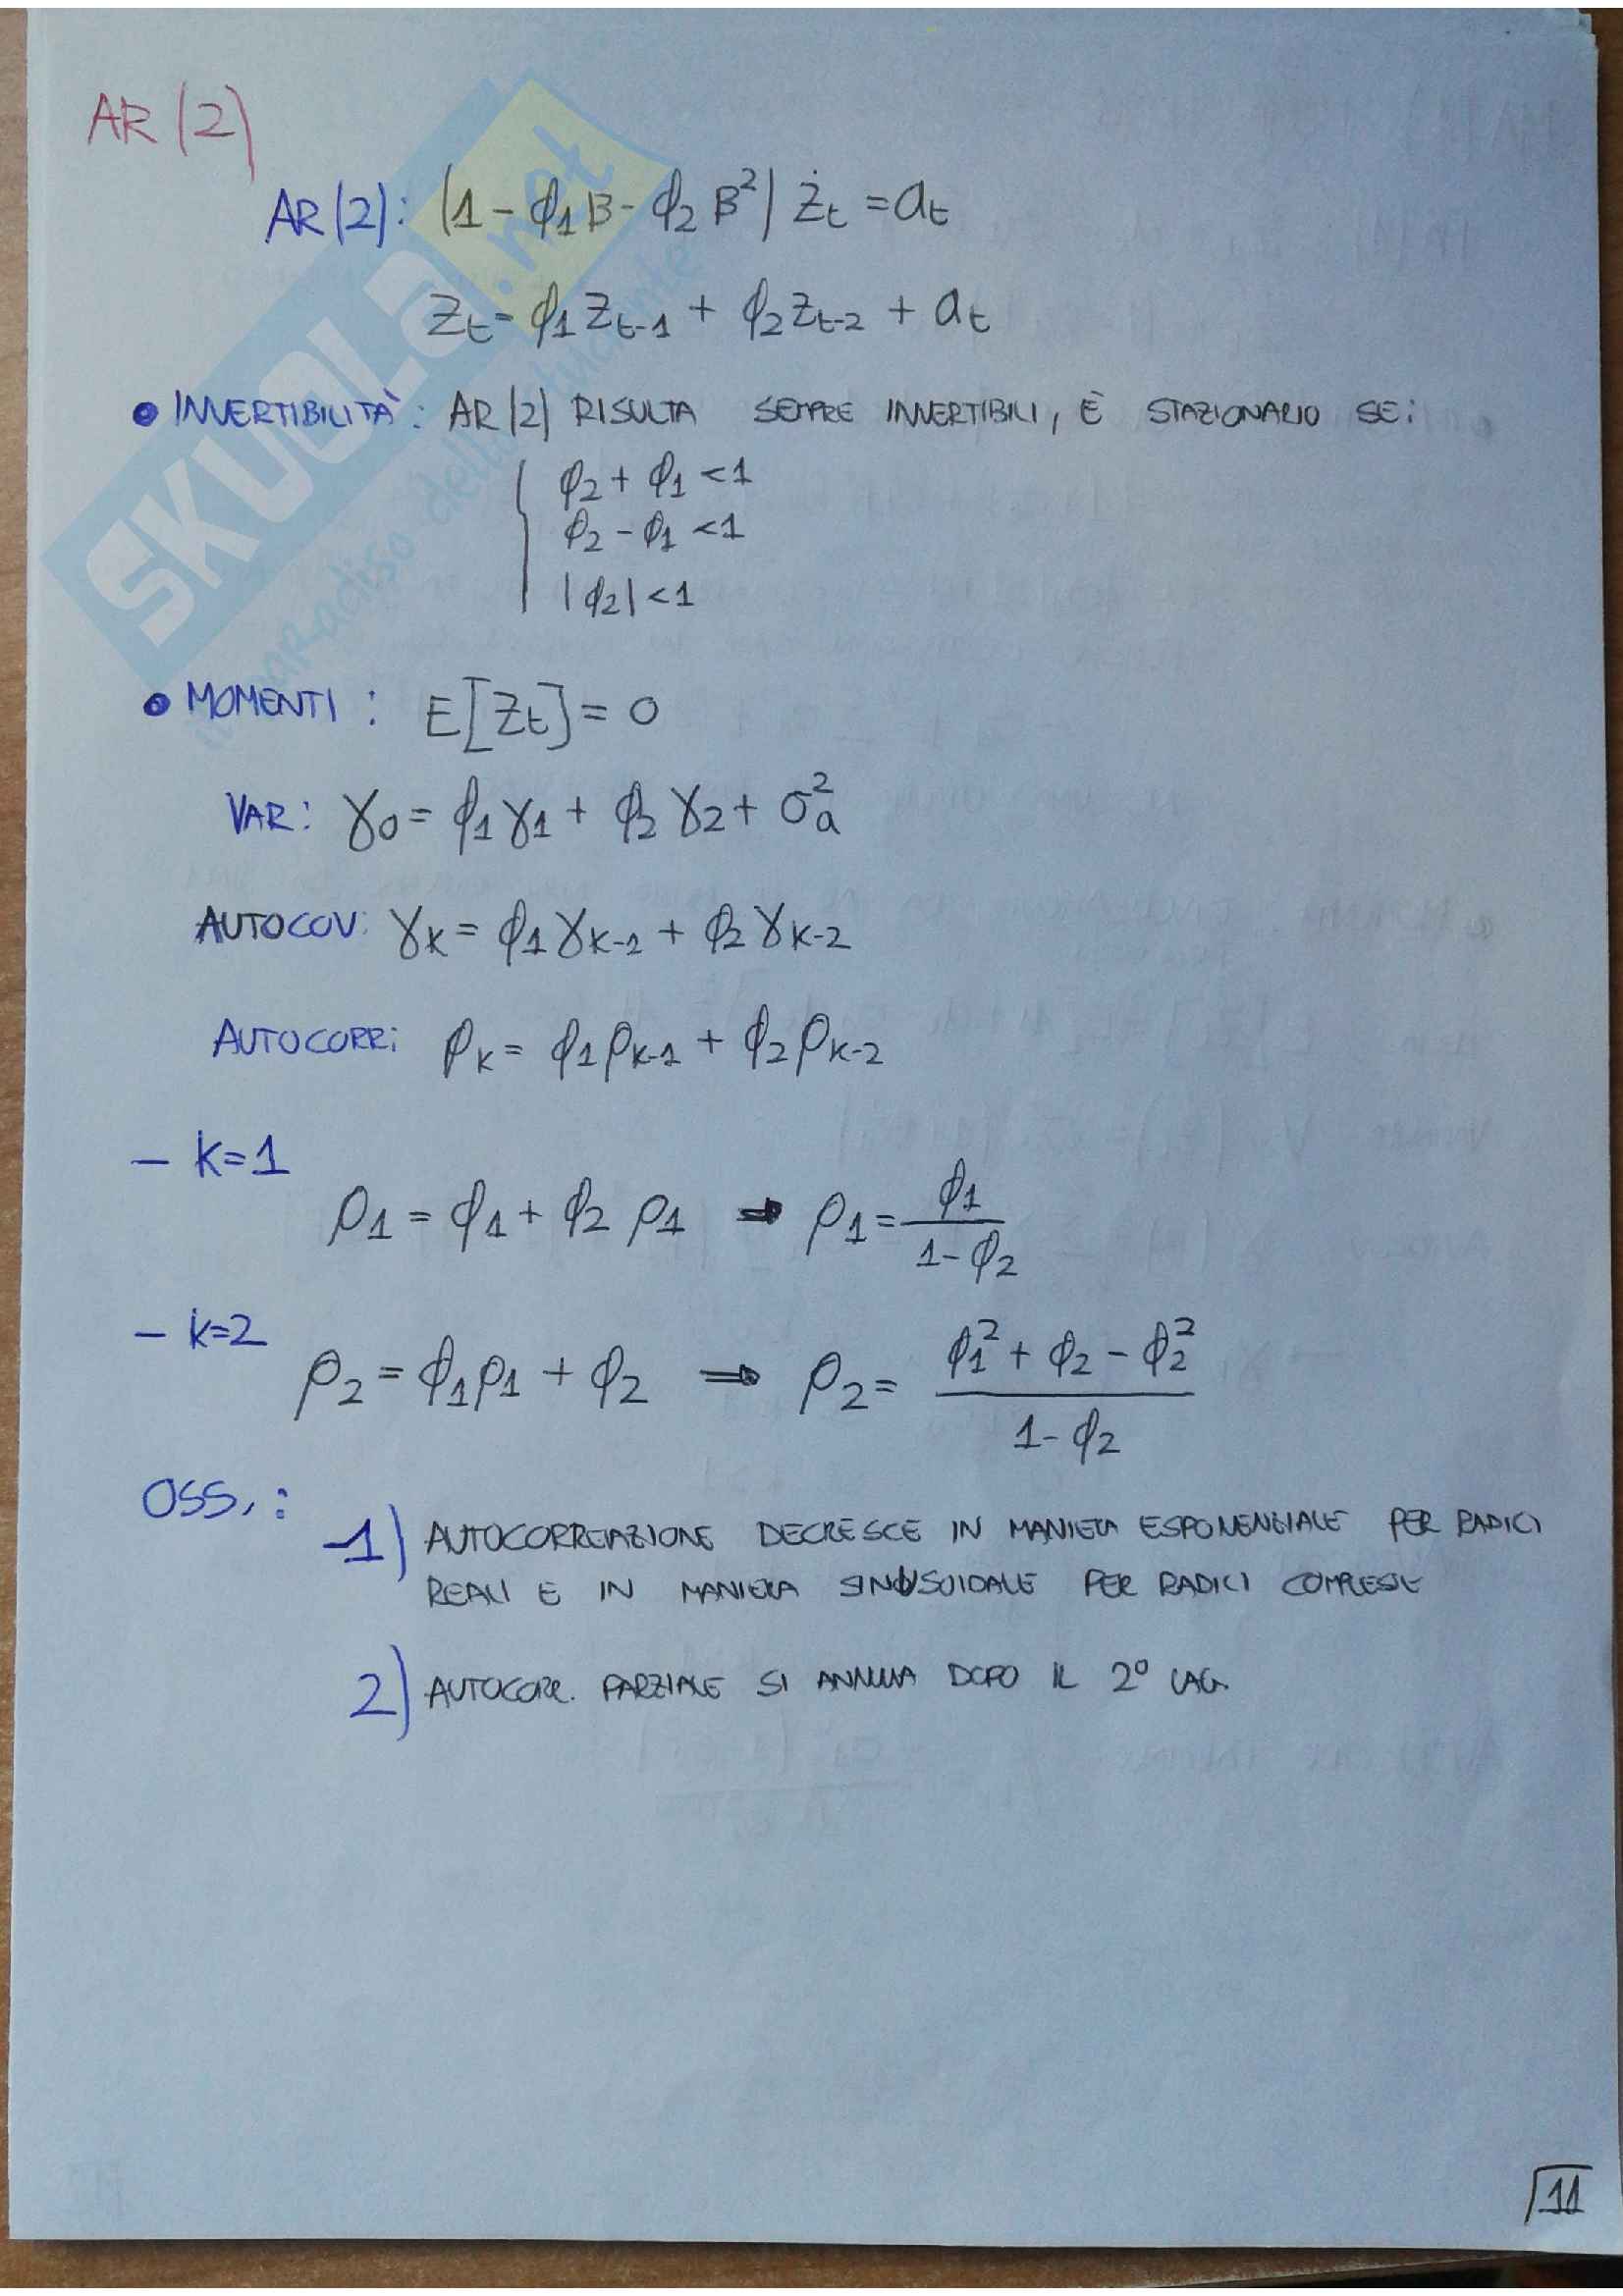 AR(2)
AR(2): (1 - ϕ1 B - ϕ2 B²) Żt = at
Zt = ϕ1 Zt-1 + ϕ2 Zt-2 + at
• INVERTIBILITÀ: AR(2) RISULTA SEMPRE INVERTIBILI, È STAZIONARIO SE:
ϕ2 + ϕ1 < 1
ϕ2 - ϕ1 < 1
|ϕ2| < 1
• MOMENTI: E[Zt] = 0
VAR: γ0 = ϕ1 γ1 + ϕ2 γ2 + σ²a
AUTOCOV: γk = ϕ1 γk-1 + ϕ2 γk-2
AUTOCORR: ρk = ϕ1 ρk-1 + ϕ2 ρk-2
- k=1
ρ1 = ϕ1 + ϕ2 ρ1 ⇒ ρ1 = ϕ1 / (1 - ϕ2)
- k=2
ρ2 = ϕ1 ρ1 + ϕ2 ⇒ ρ2 = (ϕ1² + ϕ2 - ϕ2²) / (1 - ϕ2)
OSS.:
1) AUTOCORRELAZIONE DECRESCE IN MANIERA ESPONENZIALE PER RADICI
REALI E IN MANIERA SINUSOIDALE PER RADICI COMPLESSE
2) AUTOCORR. PARZIALE SI ANNULLA DOPO IL 2° LAG.
11
SKUOLA.net
il paradiso dello studente